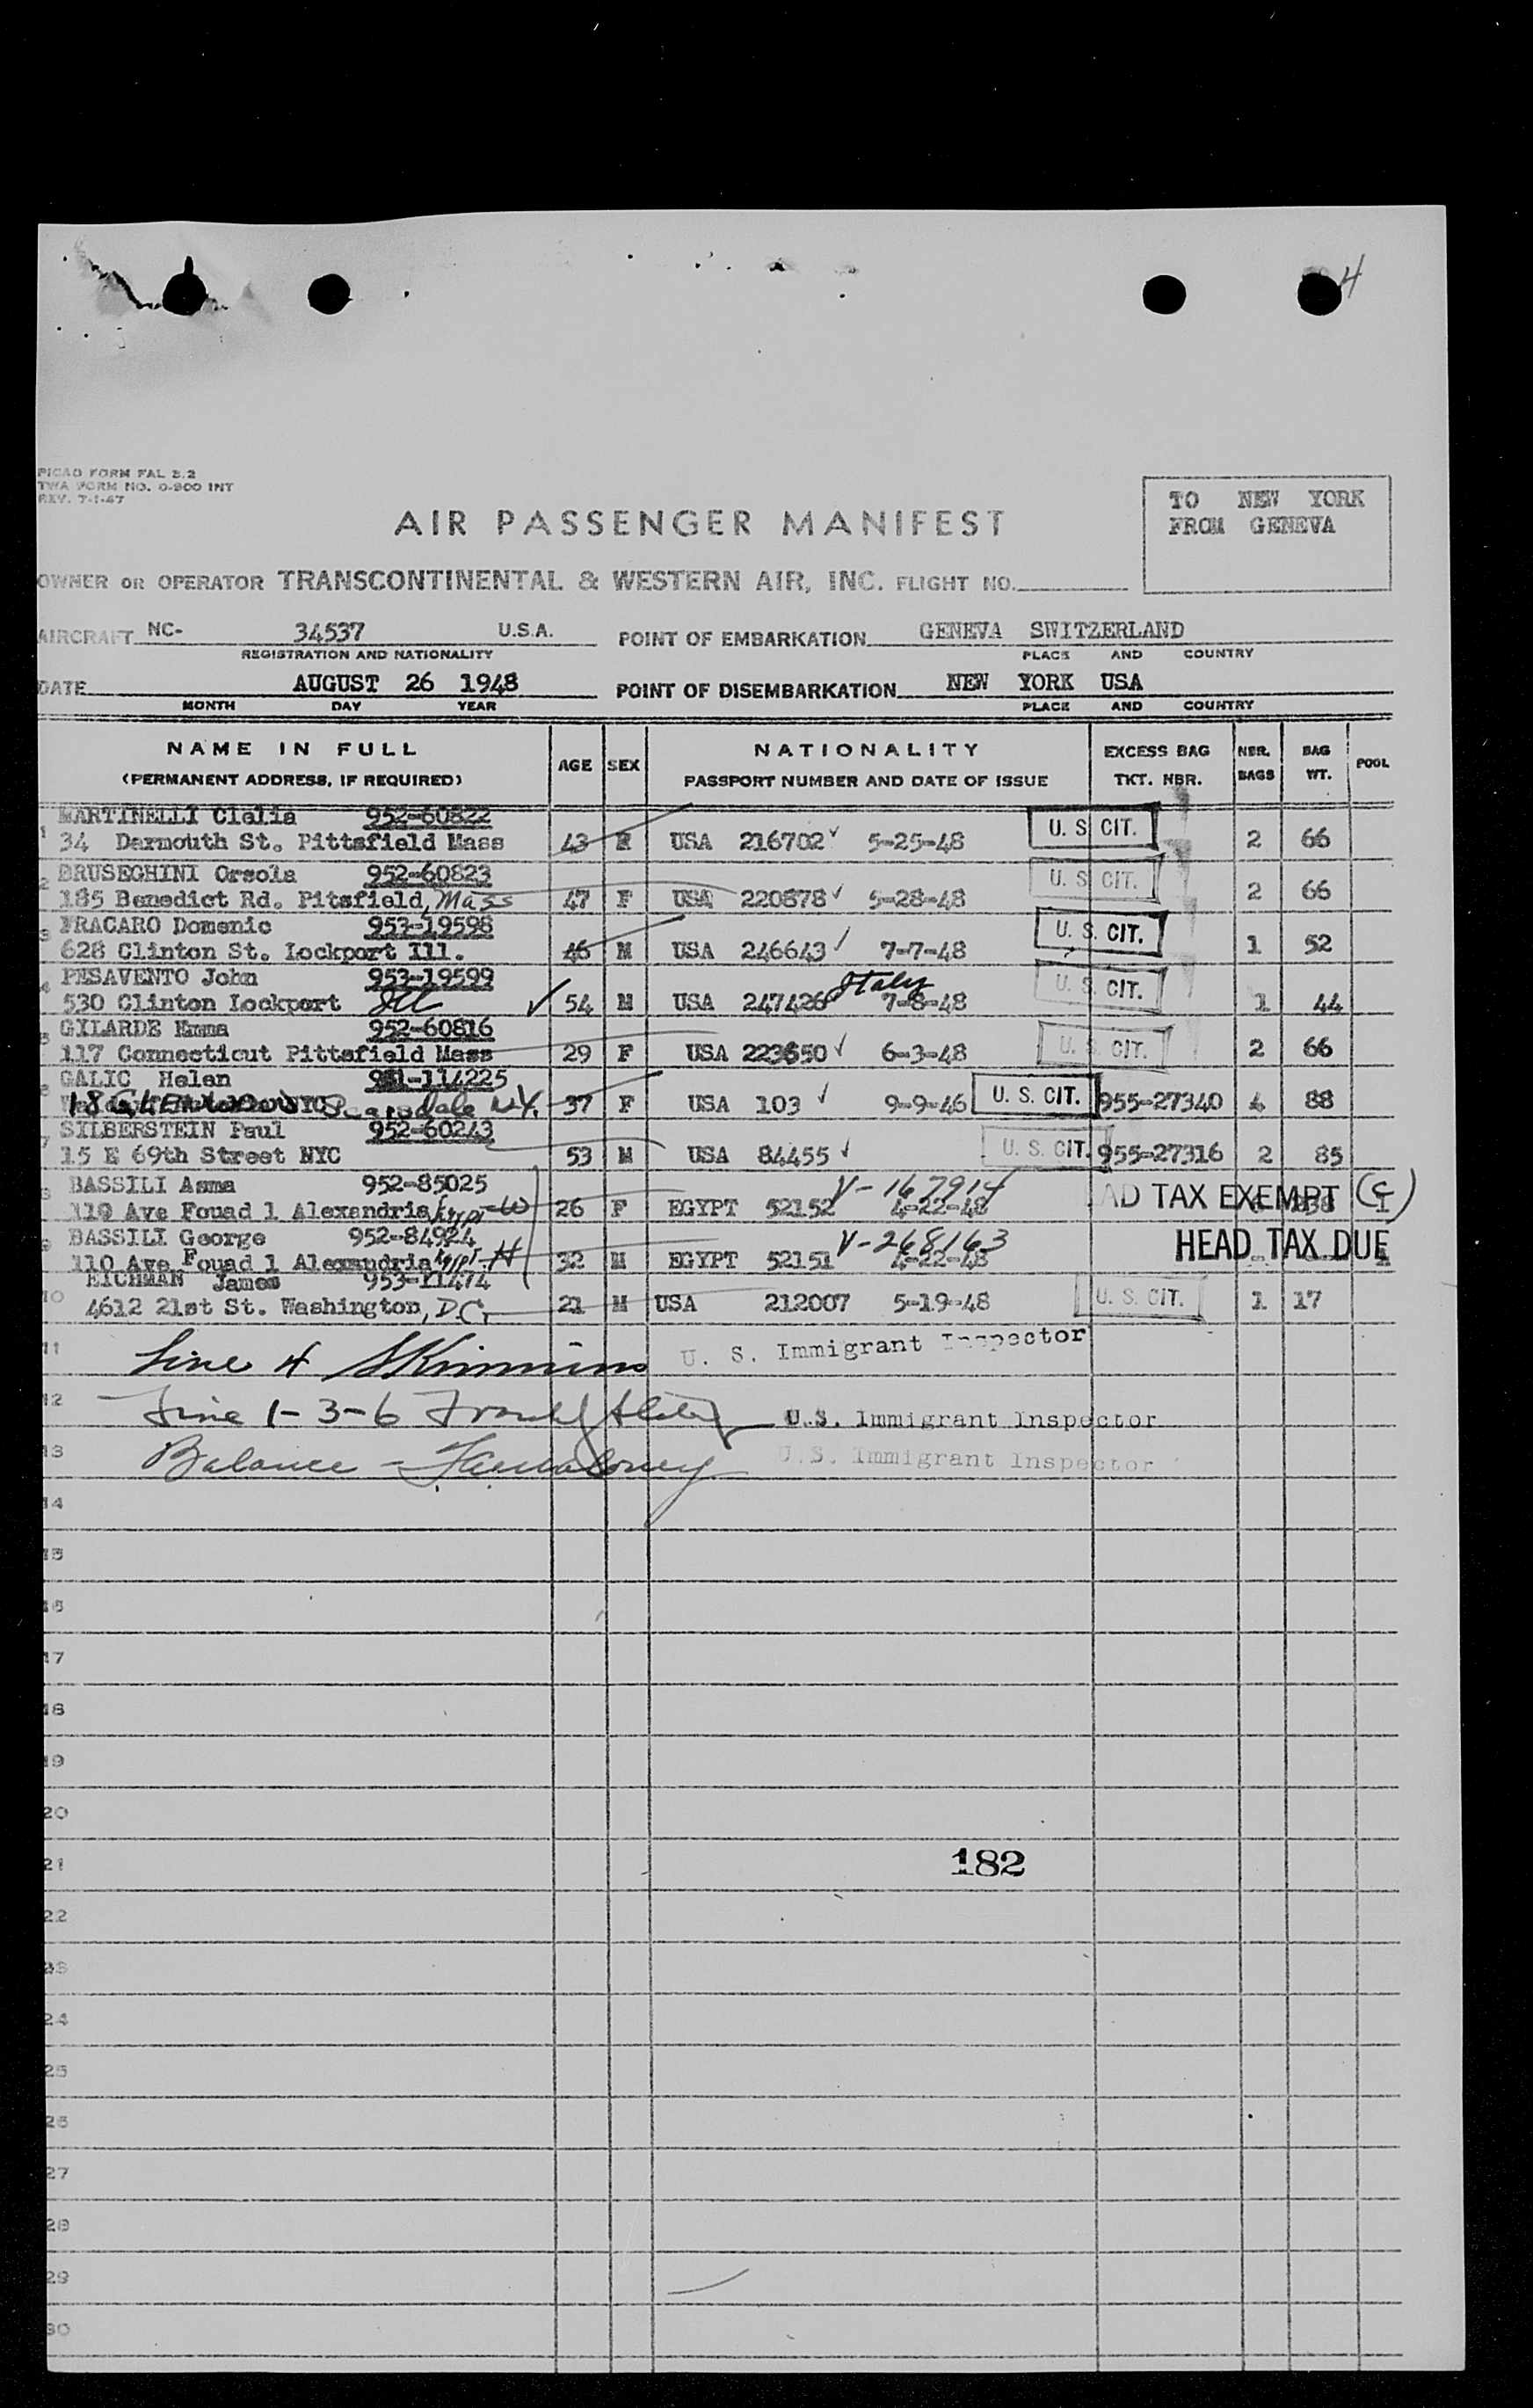 4
PICAO FORM FAL 2.2
TWA FORM NO. 0-800 INT
REV. 7-1-47
TO NEW YORK
FROM GENEVA
AIR PASSENGER MANIFEST
OWNER OR OPERATOR TRANSCONTINENTAL & WESTERN AIR, INC. FLIGHT NO.
AIRCRAFT NC- 34537 U.S.A. POINT OF EMBARKATION GENEVA SWITZERLAND
REGISTRATION AND NATIONALITY PLACE AND COUNTRY
DATE AUGUST 26 1948 POINT OF DISEMBARKATION NEW YORK USA
MONTH DAY YEAR PLACE AND COUNTRY
NAME IN FULL NATIONALITY EXCESS BAG NBR. BAG
(PERMANENT ADDRESS, IF REQUIRED) AGE SEX PASSPORT NUMBER AND DATE OF ISSUE TKT. NBR. BAGS WT. POOL
MARTINELLI Clelia 952-60822
1 34 Darmouth St. Pittsfield Mass 43 F USA 216702 5-25-48 U. S. CIT. 2 66
BRUSEGHINI Orsola 952-60823
2 185 Benedict Rd. Pitsfield, Mass 47 F USA 220878 5-28-48 U. S. CIT. 2 66
3 FRACARO Domenic 953-19598
628 Clinton St. Lockport Ill. 46 M USA 246643 7-7-48 U. S. CIT. 1 52
4 PESAVENTO John 953-19599 Italy
530 Clinton Lockport Ill 54 M USA 247426 7-8-48 U. S. CIT. 1 44
5 GILARDE Emma 952-60816
117 Connecticut Pittsfield Mass 29 F USA 223650 6-3-48 U. S. CIT. 2 66
6 GALIC Helen 951-114225
18 GLENWOOD Scarsdale N.Y. 37 F USA 103 9-9-46 U. S. CIT. 955-27340 4 88
7 SILBERSTEIN Paul 952-60243
15 E 69th Street NYC 53 M USA 84455 U. S. CIT. 955-27316 2 85
8 BASSILI Asma 952-85025 V-167914
119 Ave Fouad 1 Alexandria Egypt-W 26 F EGYPT 52152 4-22-48 AD TAX EXEMPT (C)
9 BASSILI George 952-84924 V-268163
110 Ave Fouad 1 Alexandria Egypt-H 32 M EGYPT 52151 4-22-48 HEAD TAX DUE
EICHMAN James 953-11474
10 4612 21st St. Washington, D.C. 21 M USA 212007 5-19-48 U. S. CIT. 1 17
11 Line 4 U. S. Immigrant Inspector
12 Line 1-3-6 U.S. Immigrant Inspector
13 Balance - U.S. Immigrant Inspector
14
15
16
17
18
19
20
21 182
22
23
24
25
26
27
28
29
30